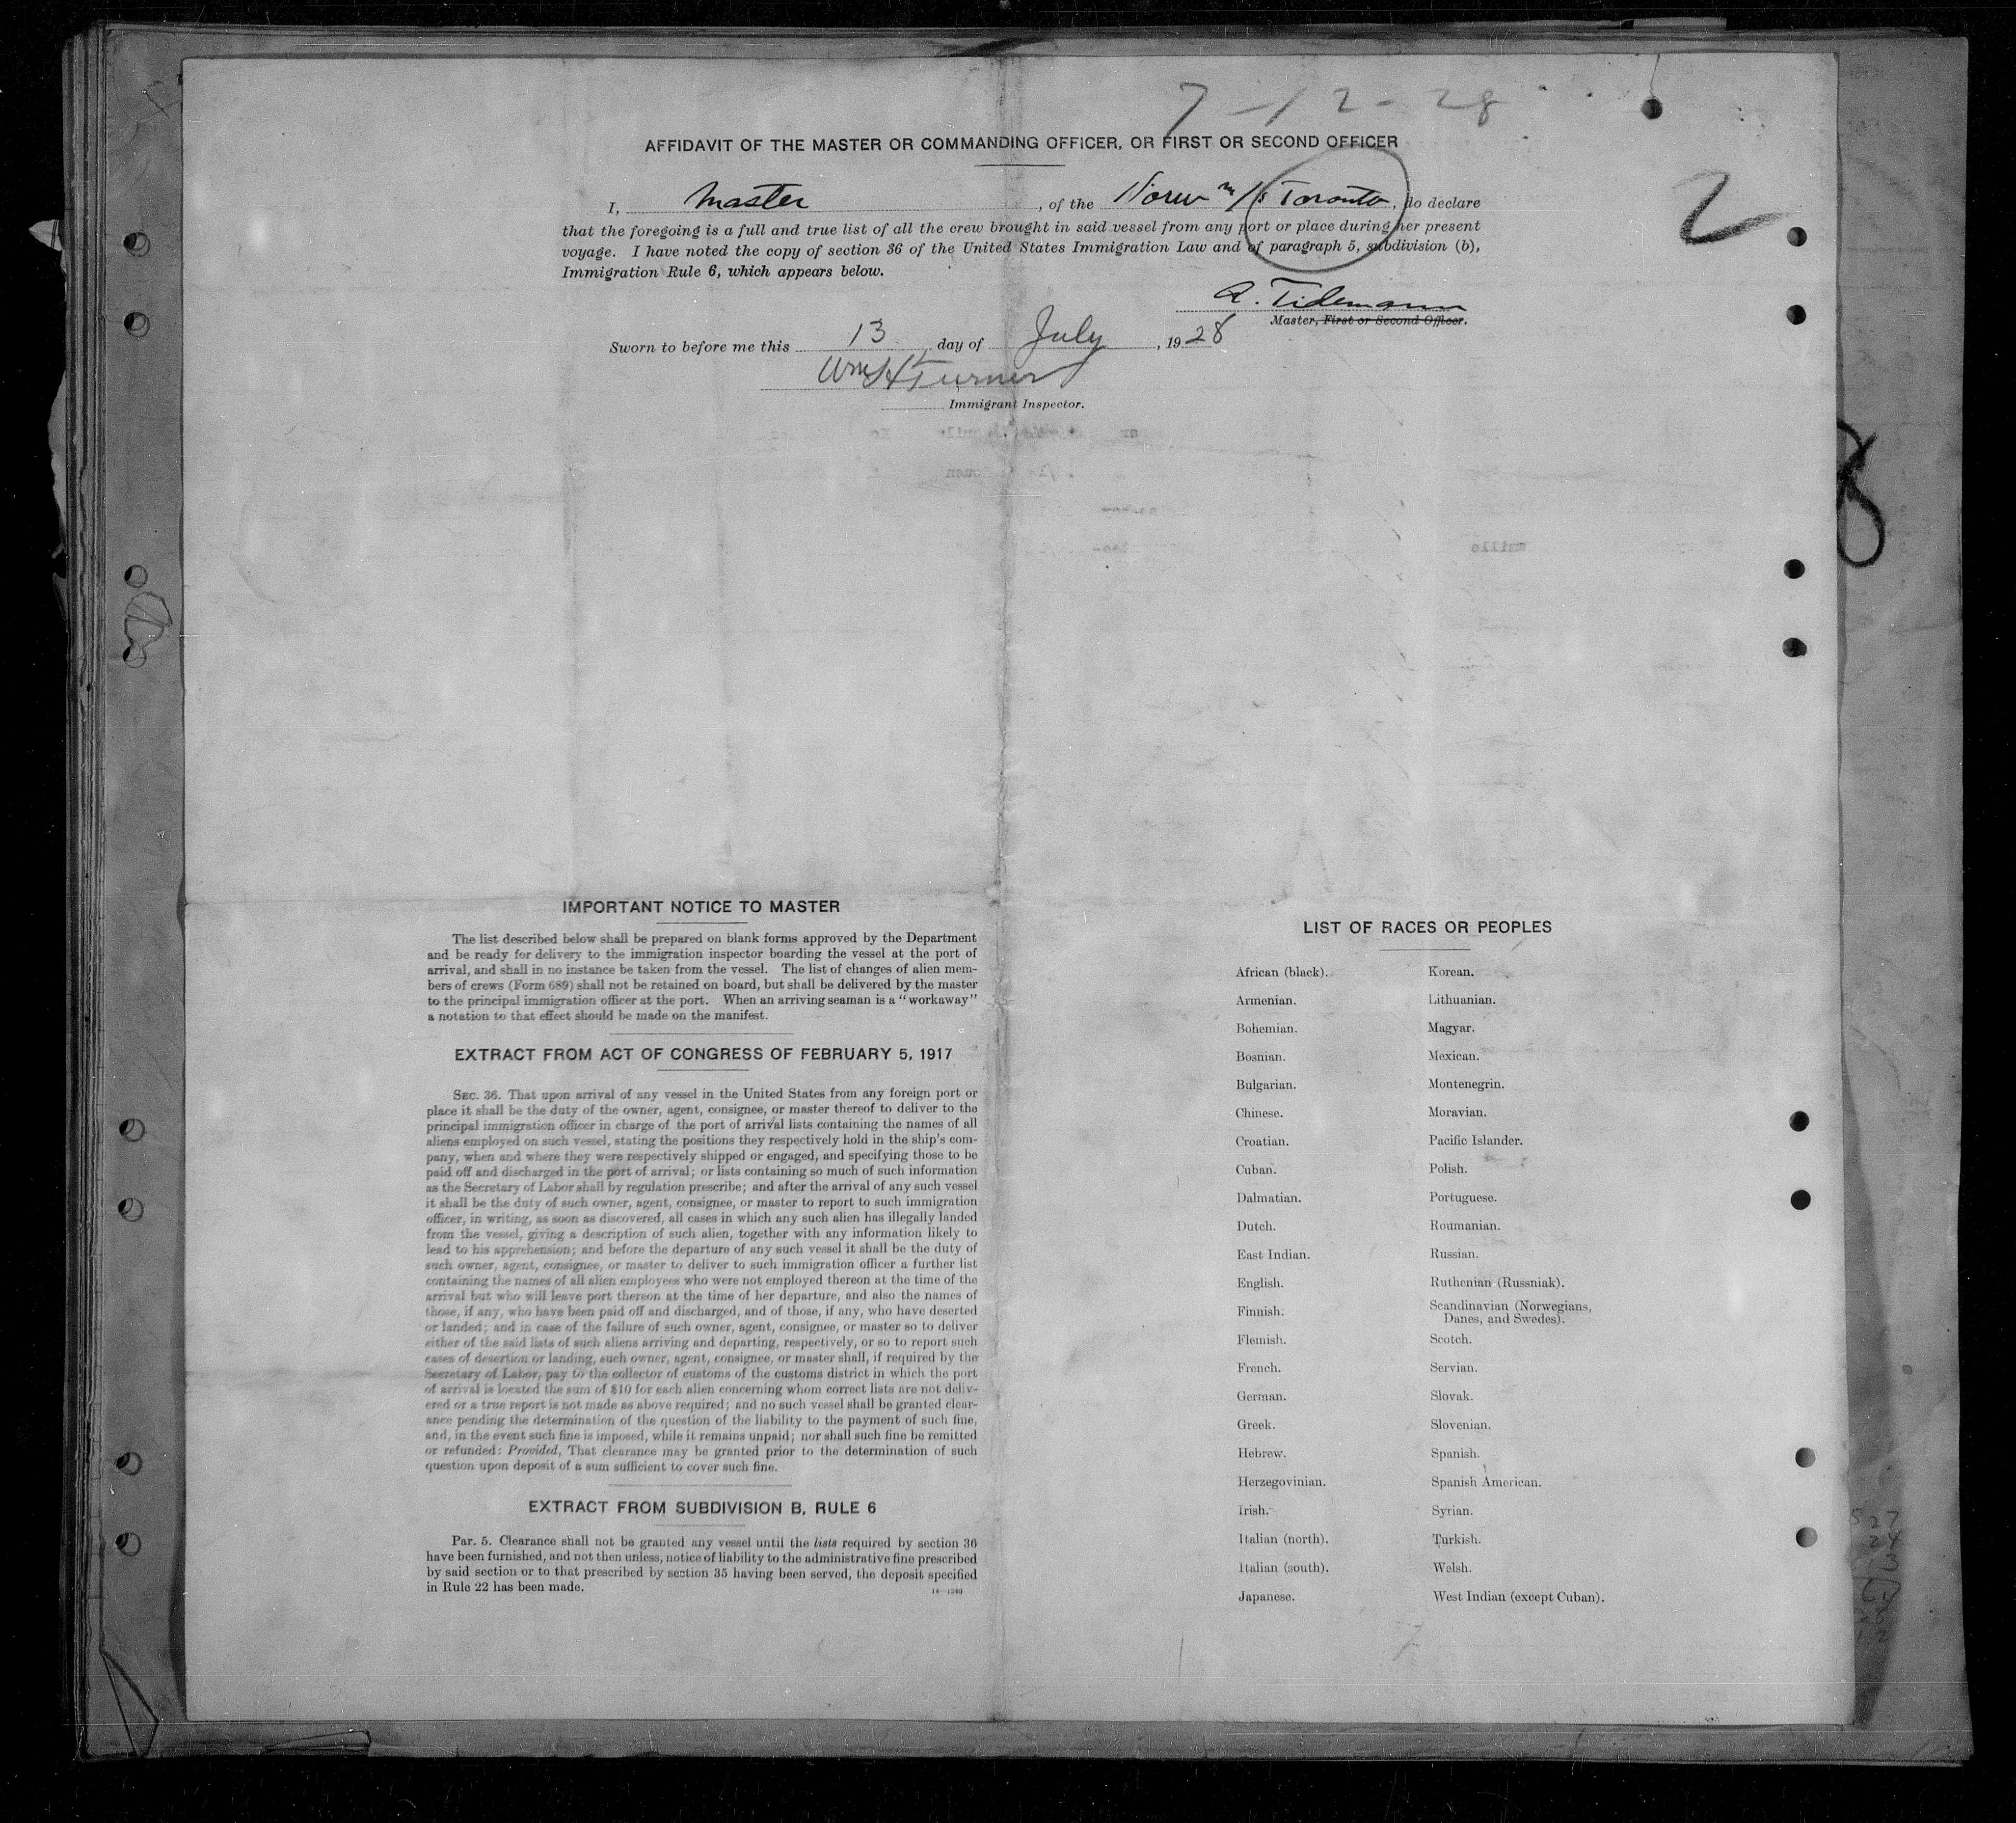 7-12-28
AFFIDAVIT OF THE MASTER OR COMMANDING OFFICER, OR FIRST OR SECOND OFFICER
2
I, Master, of the Norw m/s Toronto, do declare
that the foregoing is a full and true list of all the crew brought in said vessel from any port or place during her present
voyage. I have noted the copy of section 36 of the United States Immigration Law and of paragraph 5, subdivision (b),
Immigration Rule 6, which appears below.
A. Tidemann
Master, First or Second Officer.
Sworn to before me this 13 day of July, 1928
Wm H Turner
Immigrant Inspector.
8
IMPORTANT NOTICE TO MASTER
The list described below shall be prepared on blank forms approved by the Department
and be ready for delivery to the immigration inspector boarding the vessel at the port of
arrival, and shall in no instance be taken from the vessel. The list of changes of alien mem-
bers of crews (Form 689) shall not be retained on board, but shall be delivered by the master
to the principal immigration officer at the port. When an arriving seaman is a "workaway"
a notation to that effect should be made on the manifest.
EXTRACT FROM ACT OF CONGRESS OF FEBRUARY 5, 1917
SEC. 36. That upon arrival of any vessel in the United States from any foreign port or
place it shall be the duty of the owner, agent, consignee, or master thereof to deliver to the
principal immigration officer in charge of the port of arrival lists containing the names of all
aliens employed on such vessel, stating the positions they respectively hold in the ship's com-
pany, when and where they were respectively shipped or engaged, and specifying those to be
paid off and discharged in the port of arrival; or lists containing so much of such information
as the Secretary of Labor shall by regulation prescribe; and after the arrival of any such vessel
it shall be the duty of such owner, agent, consignee, or master to report to such immigration
officer, in writing, as soon as discovered, all cases in which any such alien has illegally landed
from the vessel, giving a description of such alien, together with any information likely to
lead to his apprehension; and before the departure of any such vessel it shall be the duty of
such owner, agent, consignee, or master to deliver to such immigration officer a further list
containing the names of all alien employees who were not employed thereon at the time of the
arrival but who will leave port thereon at the time of her departure, and also the names of
those, if any, who have been paid off and discharged, and of those, if any, who have deserted
or landed; and in case of the failure of such owner, agent, consignee, or master so to deliver
either of the said lists of such aliens arriving and departing, respectively, or so to report such
cases of desertion or landing, such owner, agent, consignee, or master shall, if required by the
Secretary of Labor, pay to the collector of customs of the customs district in which the port
of arrival is located the sum of $10 for each alien concerning whom correct lists are not deliv-
ered or a true report is not made as above required; and no such vessel shall be granted clear-
ance pending the determination of the question of the liability to the payment of such fine,
and, in the event such fine is imposed, while it remains unpaid; nor shall such fine be remitted
or refunded: Provided, That clearance may be granted prior to the determination of such
question upon deposit of a sum sufficient to cover such fine.
EXTRACT FROM SUBDIVISION B, RULE 6
Par. 5. Clearance shall not be granted any vessel until the lists required by section 36
have been furnished, and not then unless, notice of liability to the administrative fine prescribed
by said section or to that prescribed by section 35 having been served, the deposit specified
in Rule 22 has been made.
14-1240
LIST OF RACES OR PEOPLES
African (black).
Armenian.
Bohemian.
Bosnian.
Bulgarian.
Chinese.
Croatian.
Cuban.
Dalmatian.
Dutch.
East Indian.
English.
Finnish.
Flemish.
French.
German.
Greek.
Hebrew.
Herzegovinian.
Irish.
Italian (north).
Italian (south).
Japanese.
Korean.
Lithuanian.
Magyar.
Mexican.
Montenegrin.
Moravian.
Pacific Islander.
Polish.
Portuguese.
Roumanian.
Russian.
Ruthenian (Russniak).
Scandinavian (Norwegians,
Danes, and Swedes).
Scotch.
Servian.
Slovak.
Slovenian.
Spanish.
Spanish American.
Syrian.
Turkish.
Welsh.
West Indian (except Cuban).